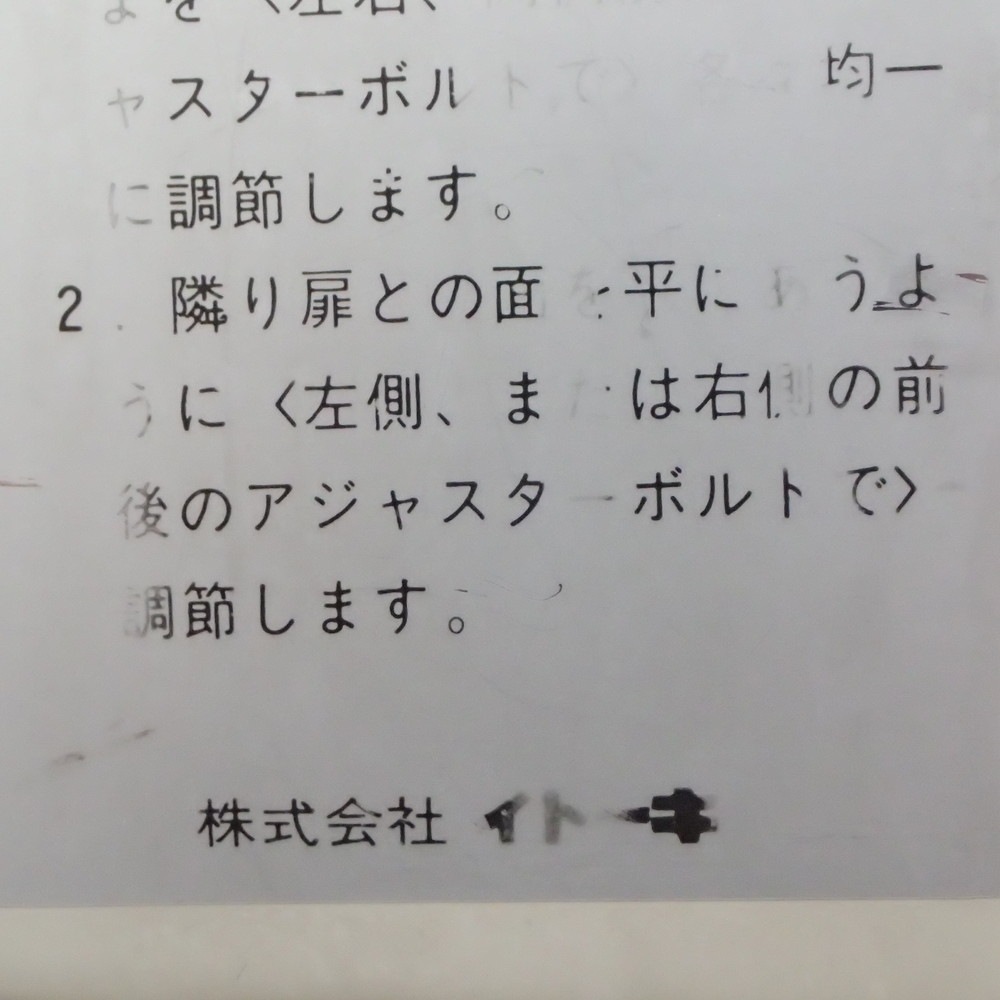 ャスターボルトで〉 均一
に調節します。
2. 隣り扉との面を平に うよ
うに〈左側、または右側の前
後のアジャスターボルトで〉
調節します。
株式会社 イトーキ